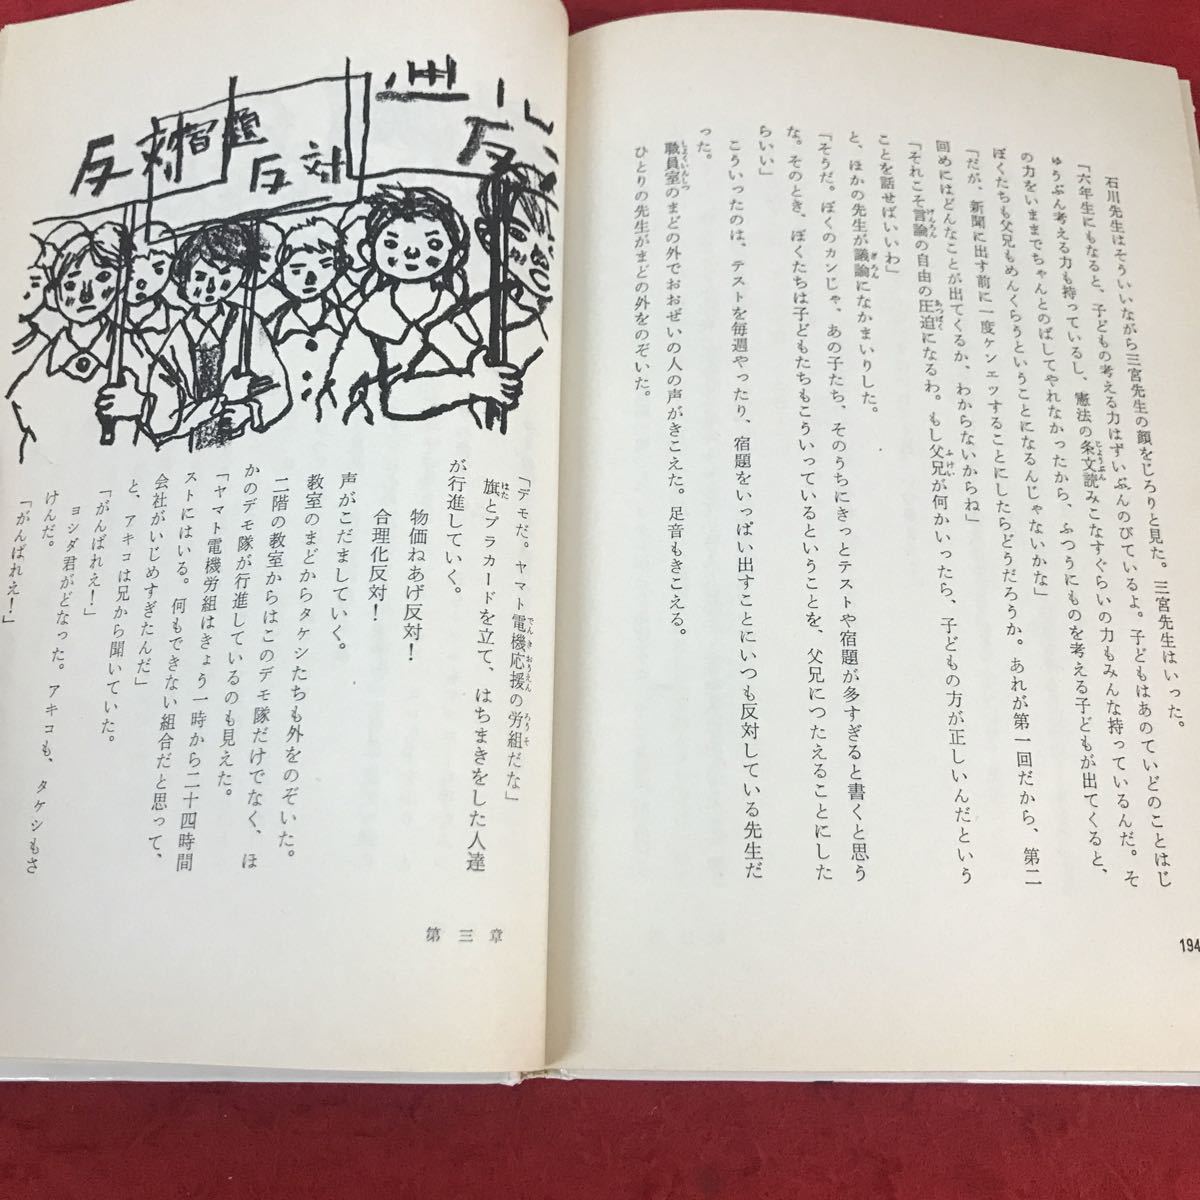 石川先生はそういいながら三宮先生の顔をじろりと見た。三宮先生はいった。
「六年生にもなると、子どもの考える力はずいぶんのびているよ。子どもはあのていどのことはじ
ゅうぶん考える力も持っているし、憲法の条文読みこなすぐらいの力もみんな持っているんだ。そ
の力をいままでちゃんとのばしてやれなかったから、ふつうにものを考える子どもが出てくると、
ぼくたちも父兄もめんくらうということになるんじゃないかな」
「だが、新聞に出す前に一度ケンエツすることにしたらどうだろうか。あれが第一回だから、第二
回めにはどんなことが出てくるか、わからないからね」
「それこそ言論の自由の圧迫になるわ。もし父兄が何かいったら、子どもの方が正しいんだという
ことを話せばいいわ」
と、ほかの先生が議論になかまいりした。
「そうだ。ぼくのカンじゃ、あの子たち、そのうちにきっとテストや宿題が多すぎると書くと思う
な。そのとき、ぼくたちは子どもたちもこういっているということを、父兄につたえることにした
らいい」
こういったのは、テストを毎週やったり、宿題をいっぱい出すことにいつも反対している先生だ
った。
職員室のまどの外でおおぜいの人の声がきこえた。足音もきこえる。
ひとりの先生がまどの外をのぞいた。
194
反対
宿題
反対
反
「デモだ。ヤマト電機応援の労組だな」
旗とプラカードを立て、はちまきをした人達
が行進していく。
物価ねあげ反対！
合理化反対！
声がこだましていく。
教室のまどからタケシたちも外をのぞいた。
二階の教室からはこのデモ隊だけでなく、ほ
かのデモ隊が行進しているのも見えた。
「ヤマト電機労組はきょう一時から二十四時間
ストにはいる。何もできない組合だと思って、
会社がいじめすぎたんだ」
と、アキコは兄から聞いていた。
「がんばれえ！」
ヨシダ君がどなった。アキコも、タケシもさ
けんだ。
「がんばれえ！」
第三章